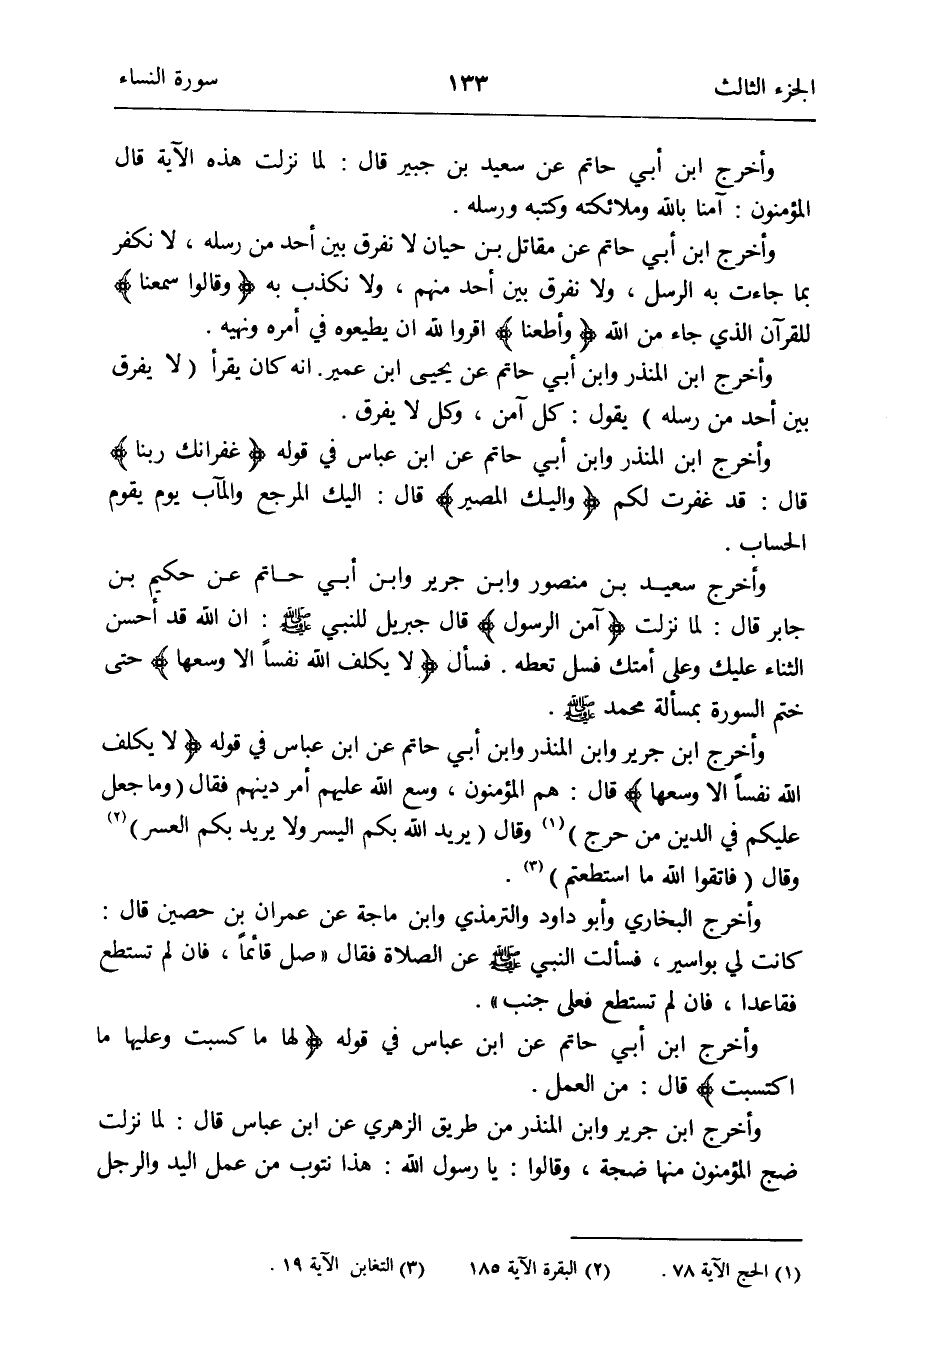 الجزء الثالث ١٣٣ سورة النساء
وأخرج ابن أبي حاتم عن سعيد بن جبير قال : لما نزلت هذه الآية قال
المؤمنون : آمنا بالله وملائكته وكتبه ورسله .
وأخرج ابن أبي حاتم عن مقاتل بن حيان لا نفرق بين أحد من رسله ، لا نكفر
بما جاءت به الرسل ، ولا نفرق بين أحد منهم ، ولا نكذب به ﴿ وقالوا سمعنا ﴾
للقرآن الذي جاء من الله ﴿ وأطعنا ﴾ اقروا لله ان يطيعوه في أمره ونهيه .
وأخرج ابن المنذر وابن أبي حاتم عن يحيى ابن عمير. انه كان يقرأ ( لا يفرق
بين أحد من رسله ) يقول : كل آمن ، وكل لا يفرق .
وأخرج ابن المنذر وابن أبي حاتم عن ابن عباس في قوله ﴿ غفرانك ربنا ﴾
قال : قد غفرت لكم ﴿ واليك المصير ﴾ قال : اليك المرجع والمآب يوم يقوم
الحساب .
وأخرج سعيد بن منصور وابن جرير وابن أبي حاتم عن حكيم بن
جابر قال : لما نزلت ﴿ آمن الرسول ﴾ قال جبريل للنبي ﷺ : ان الله قد أحسن
الثناء عليك وعلى أمتك فسل تعطه . فسأل ﴿ لا يكلف الله نفساً الا وسعها ﴾ حتى
ختم السورة بمسألة محمد ﷺ .
وأخرج ابن جرير وابن المنذر وابن أبي حاتم عن ابن عباس في قوله ﴿ لا يكلف
الله نفساً الا وسعها ﴾ قال : هم المؤمنون ، وسع الله عليهم أمر دينهم فقال ( وما جعل
عليكم في الدين من حرج ) (١) وقال ( يريد الله بكم اليسر ولا يريد بكم العسر ) (٢)
وقال ( فاتقوا الله ما استطعتم ) (٣) .
وأخرج البخاري وأبو داود والترمذي وابن ماجة عن عمران بن حصين قال :
كانت لي بواسير ، فسألت النبي ﷺ عن الصلاة فقال « صل قائماً ، فان لم تستطع
فقاعدا ، فان لم تستطع فعلى جنب » .
وأخرج ابن أبي حاتم عن ابن عباس في قوله ﴿ لها ما كسبت وعليها ما
اكتسبت ﴾ قال : من العمل .
وأخرج ابن جرير وابن المنذر من طريق الزهري عن ابن عباس قال : لما نزلت
ضج المؤمنون منها ضجة ، وقالوا : يا رسول الله : هذا نتوب من عمل اليد والرجل
(١) الحج الآية ٧٨ . (٢) البقرة الآية ١٨٥ (٣) التغابن الآية ١٩ .